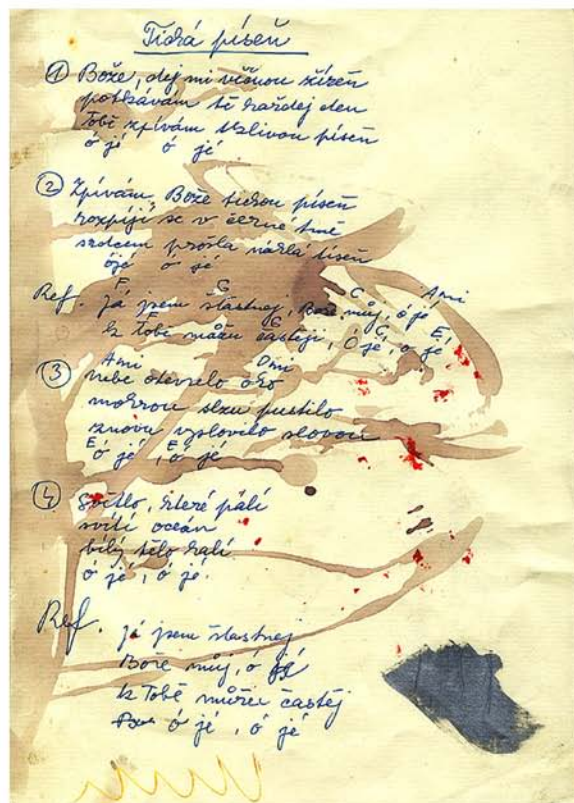 Tichá píseň
① Bože, dej mi věčnou žízeň
potkávám tě každej den
Tobě zpívám tklivou píseň
ó jé ó jé
② Zpívám, Bože tichou píseň
rozpíjí se v černé tmě
srdcem prošla náhlá tíseň
ójé ó jé
F G C Ami
Ref. Já jsem šťastnej, Bože můj, ó jé
F G C E
k Tobě můžu častěji, ó jé, ó jé
Ami Dmi
③ nebe otevřelo oko
mokrou slzu pustilo
znovu vyslovilo slovou
E E
ó jé, ó jé
④ Světlo, které pálí
svítí oceán
bílý tělo halí
ó jé, ó jé.
Ref. já jsem šťastnej
Bože můj, ó jé
k Tobě můžu častěj
ó jé, ó jé